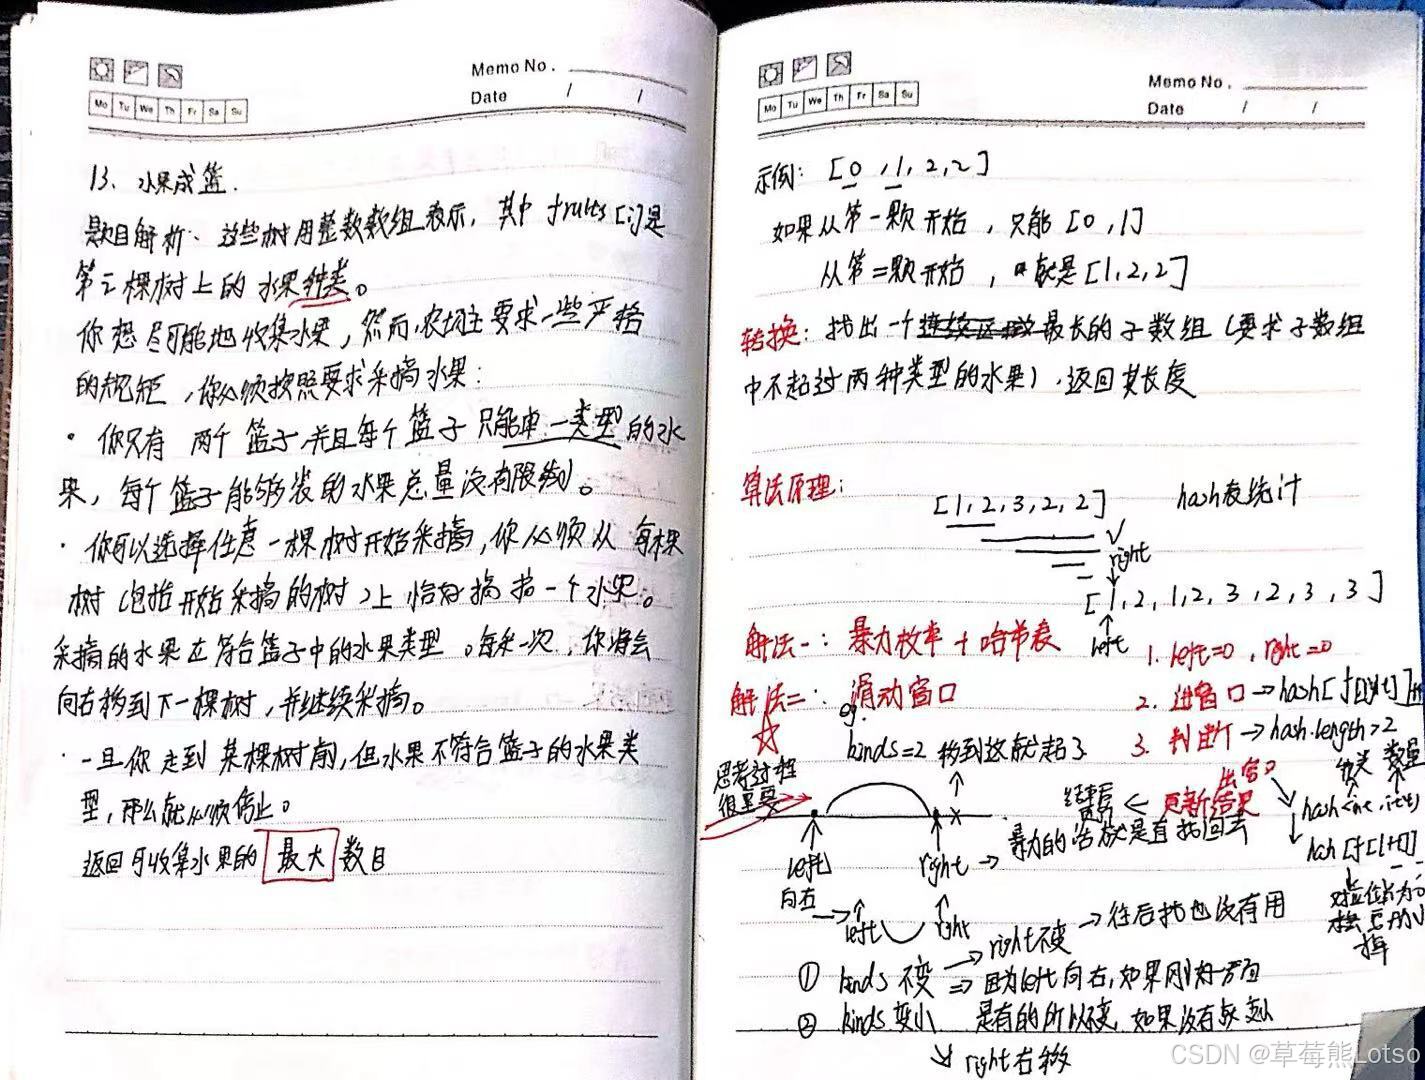 Memo No.
Date / /
Mo Tu We Th Fr Sa Su
13、水果成篮.
题目解析: 这些树用整数数组表示, 其中 fruits[i]是
第i棵树上的水果种类。
你想尽可能地收集水果, 然而,农场主要求一些严格
的规矩,你必须按照要求采摘水果:
· 你只有 两个 篮子,并且每个篮子只能单一类型的水
果, 每个篮子能够装的水果总量没有限制。
· 你可以选择任意一棵树开始采摘, 你必须从 每棵
树(包括开始采摘的树)上恰好摘 一个水果。
采摘的水果在符合篮子中的水果类型。每采一次, 你将会
向右移到下一棵树, 并继续采摘。
· 一旦你走到某棵树前, 但水果不符合篮子的水果类
型, 那么就必须停止。
返回可收集水果的 最大 数目
Memo No.
Date / /
Mo Tu We Th Fr Sa Su
示例: [0,1,2,2]
如果从第一颗开始, 只能[0,1]
从第二颗开始, 就是[1,2,2]
转换: 找出一个最长的子数组(要求子数组
中不超过两种类型的水果), 返回其长度
算法原理:
[1,2,3,2,2] hash表统计
right
[1,2,1,2,3,2,3,3]
left
解法一: 暴力枚举+哈希表
1. left=0, right=0
解法二: 滑动窗口
2. 进窗口→hash[f[right]]++
eg.
kinds=2 移到这就超了
3. 判断→hash.length>2
种类 数量
思考过程
很重要
出窗口
结束后
更新结果
hash<int,int>
暴力的话就是直接回去
hash[f[left]]--
left
向右
right
left right
right不变→往后找也没有用
① kinds 不变 ⇒ 因为left向右,如果刚好
② kinds 变小 是有的所以不变, 如果没有就变小
right右移
CSDN @草莓熊Lotso